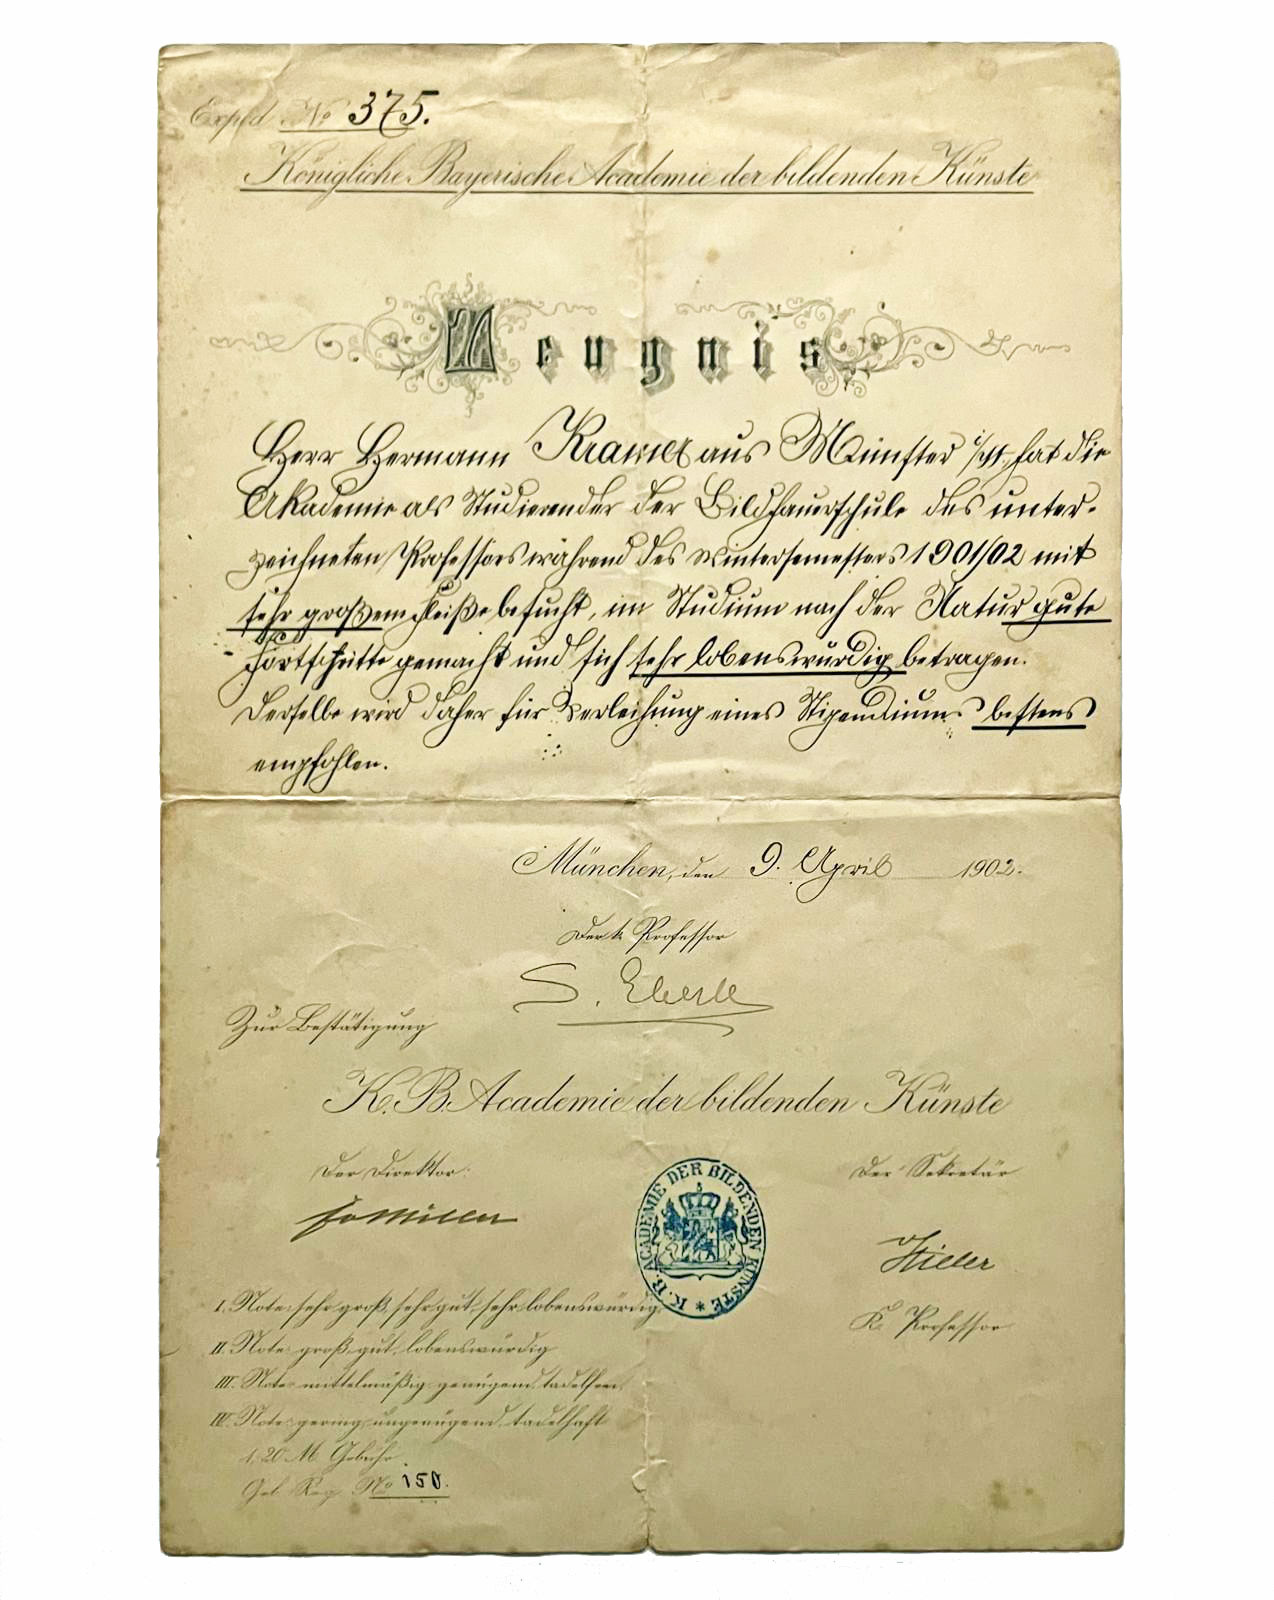 Exped. No 375.
Königliche Bayerische Academie der bildenden Künste
Zeugnis
Herr Hermann aus Münster i/W. hat die
Akademie als Studierender der Bildhauerschule des unter-
zeichneten Professors während des Wintersemesters 1901/02 mit
sehr großem Fleiße besucht, im Studium nach der Natur gute
Fortschritte gemacht und sich sehr lobenswürdig betragen.
Derselbe wird daher für Verleihung eines Stipendiums bestens
empfohlen.
München, den 9. April 1902.
Der k. Professor
S. Eberle
Zur Bestätigung
K. B. Academie der bildenden Künste
Der Direktor:
Der Sekretär
K. B. ACADEMIE DER BILDENDEN KÜNSTE *
K. Professor
I. Note: sehr groß, sehr gut, sehr lobenswürdig
II. Note: groß, gut, lobenswürdig
III. Note: mittelmäßig, genügend, tadelfrei
IV. Note: gering, ungenügend, tadelhaft
1. 20 M Gebühr.
Geb. Reg. No 150.